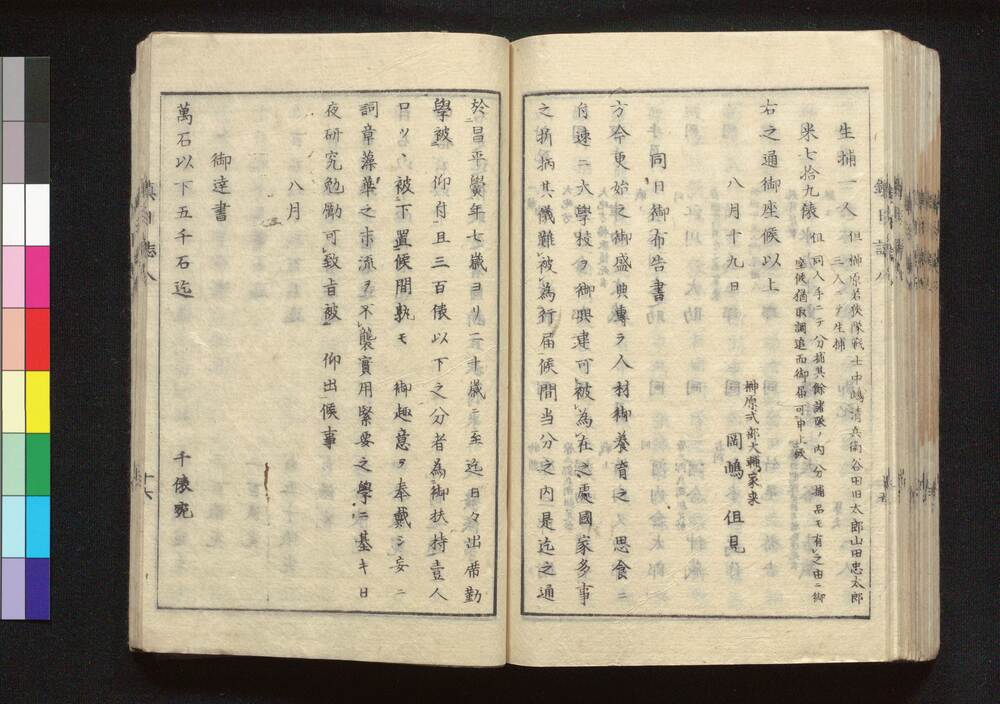 生捕一人 但 榊原若狹隊戦士中嶋清兵衛谷田田太郎山田忠太郎
三人ニテ生捕
米七拾九俵 但 同人手ニテ分捕其餘諸隊ノ内分捕品モ有之由ニ御
座候猶取調追而御届可申上候
右之通御座候以上
八月十九日
榊原式部大輔家来
岡嶋但見
同日御布告書
方今更始之御盛典専ラ人材御養育之 思食ニ
付速ニ六學校ヲ御興建可被為在之處國家多事
之折柄其儀難被為行届候間当分之内是迄之通
於昌平黌年七歳ヨリ二十歳ニ至迄日々出席勤
學被 仰付且三百俵以下之分者為御扶持壹人
口ツヽ被下置候間孰モ 御趣意ヲ奉戴シ妄ニ
詞章藻華之末流ヲ不襲實用緊要之學ニ基キ日
夜研究勉勵可致旨被 仰出候事
八月
御達書
萬石以下五千石迄 千俵宛
鎮
誌八
十六